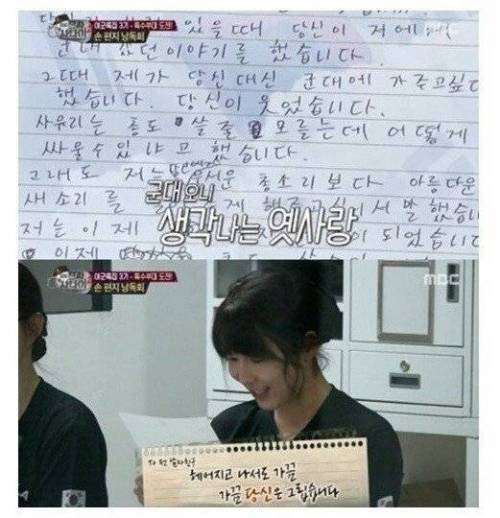 여군특집 3기 - 특수부대 도전!
손 편지 낭독회
MBC
있을때 당신이 저에
군대 갔던 이야기를 했습니다.
그때 제가 당신대신 군대에 가주고싶다
했습니다. 당신이 웃었습니다.
사유리는 총도 쏠 줄 모르는데 어떻게
싸울수 있냐고 했습니다.
그래도 저는 총소리보다 아름다운
새 소리를
군대 오니
생각나는 옛사랑
저는 이제 되었습니
이제
여군특집 3기 - 특수부대 도전!
손 편지 낭독회
MBC
To 전 남자친구
헤어지고 나서도 가끔
가끔 당신은 그립습니다